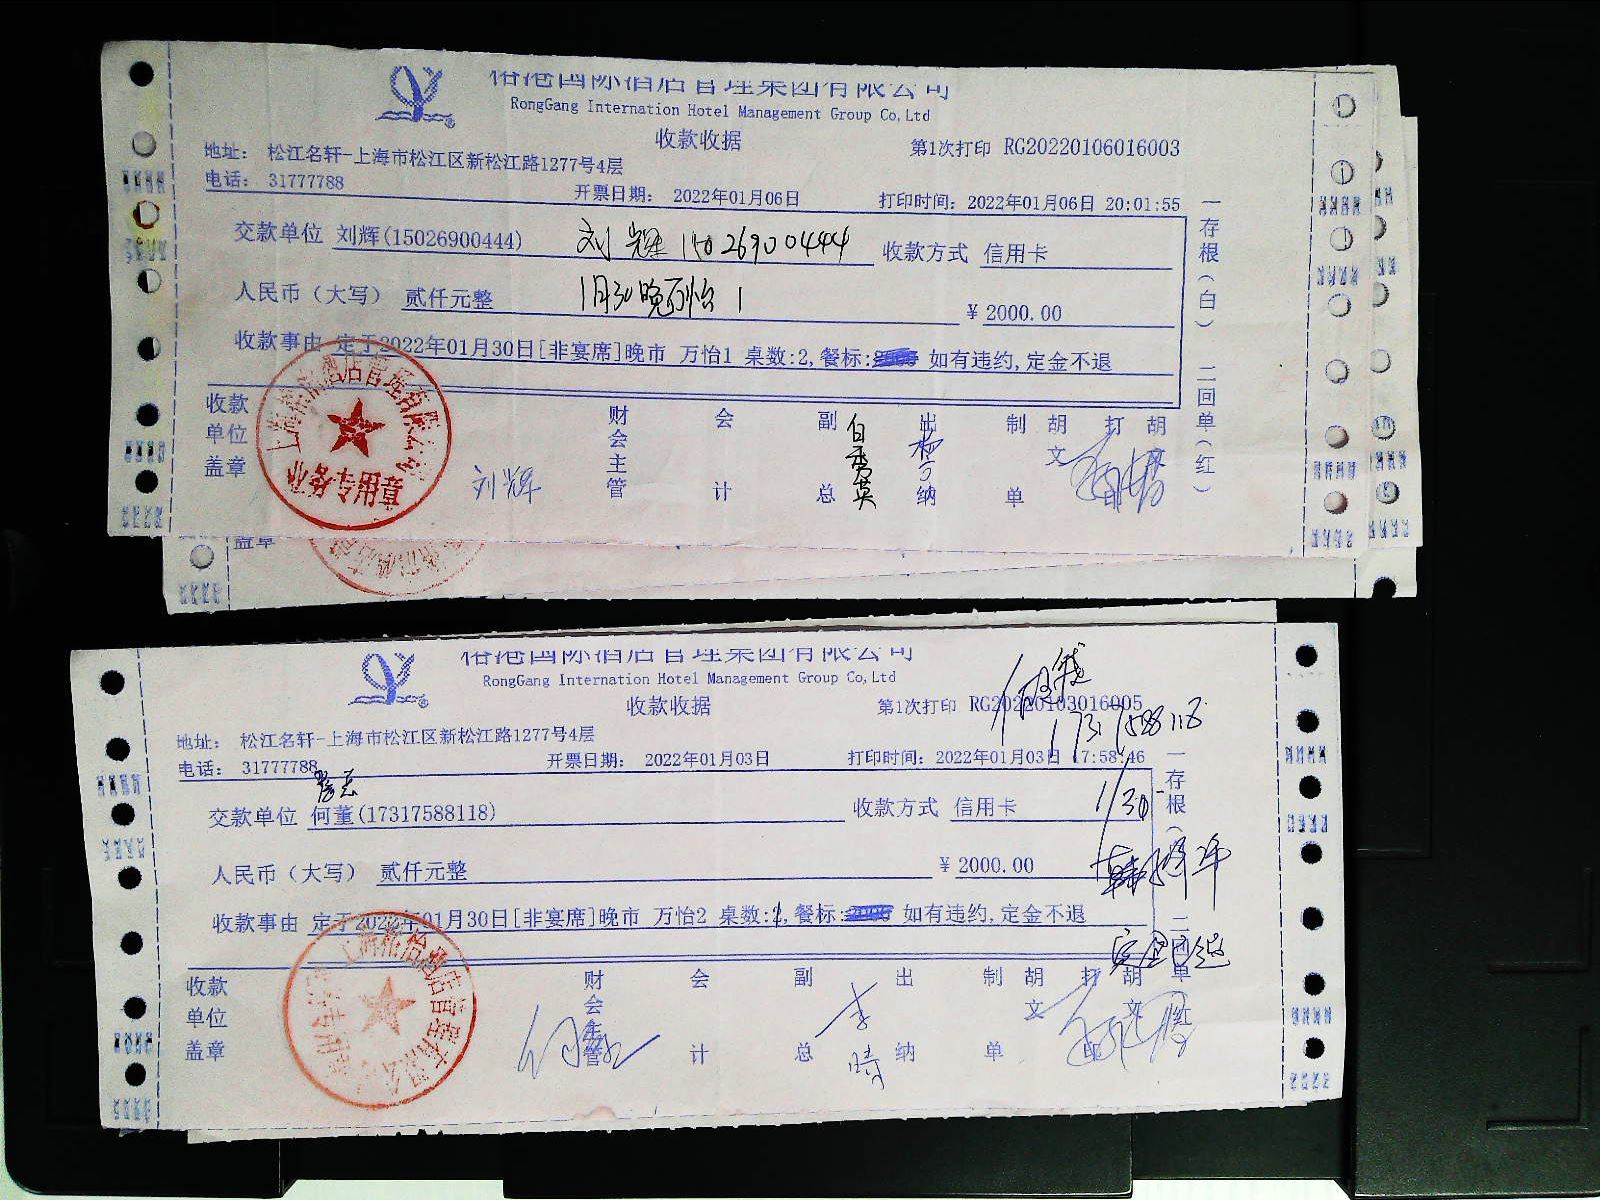 港国际酒店管理集团有限公司
RongGang Internation Hotel Management Group Co,Ltd
收款收据
第1次打印 RG20220106016003
地址： 松江名轩-上海市松江区新松江路1277号4层
电话： 31777788
开票日期： 2022年01月06日
打印时间：2022年01月06日 20:01:55
交款单位 刘辉(15026900444) 刘辉 15026900444 收款方式 信用卡
人民币（大写） 贰仟元整 1月30晚万怡1 ￥2000.00
收款事由 定于2022年01月30日[非宴席]晚市 万怡1 桌数:2,餐标: 如有违约,定金不退
一存根（白） 二回单（红）
收款单位盖章
刘辉
财会主管
会计
副总
白秀英
出纳
制单 胡文
打印 胡
盖章
港国际酒店管理集团有限公司
RongGang Internation Hotel Management Group Co,Ltd
收款收据
第1次打印 RG20220103016005
地址： 松江名轩-上海市松江区新松江路1277号4层
电话： 31777788
开票日期： 2022年01月03日
打印时间：2022年01月03日 17:58:46
交款单位 何董(17317588118)
收款方式 信用卡 1/30
人民币（大写） 贰仟元整 ￥2000.00
收款事由 定于2022年01月30日[非宴席]晚市 万怡2 桌数: ,餐标: 如有违约,定金不退
定金已退
一存根（ 二回单（红
收款单位盖章
财会主管
会计
副总
李
出纳
制单 胡文
打印 胡文